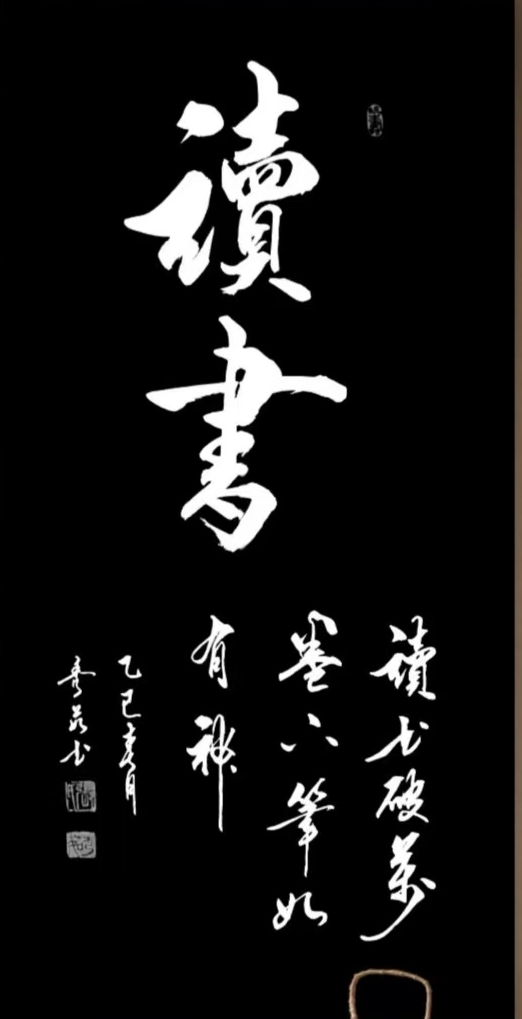 讀
書
讀书破萬
卷下筆如
有神
乙巳春月